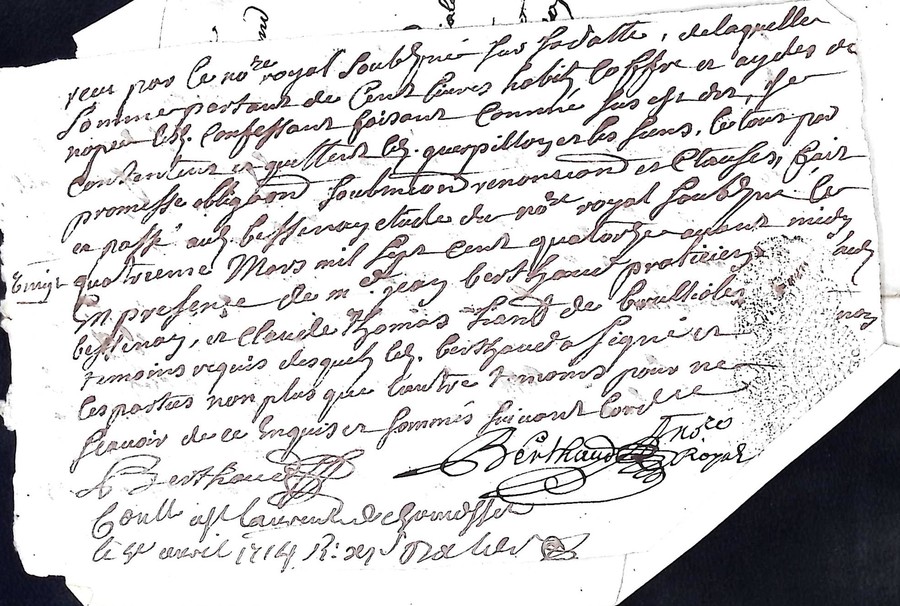 receu par le no.re royal soub.né sus la datte, de laquelle
somme portant de cent livres habit coffre et aydes de
nopce led. confessant faisant comme sus est dit, se
contentent et quittent led. querpillon et les siens, le tout par
promesse obligaõn soubmission renonciaõn et clauses, fait
et passé aud. bessenay etude du no.re royal soub.né le
quatrieme Mars mil sept cent quatorze avant midy
en presence de m.e jean berthaud praticien aud.
bessenay, et Claude Thomas
temoins requis desquels led. berthaud a signé et
les parties non plus que l'autre temoins pour ne
scavoir de ce enquis et sommés suivant l'ord.ce
Berthaud Berthaud no.re
Royal
Coull a St Laurent de chamousset
le avril 1714 R.